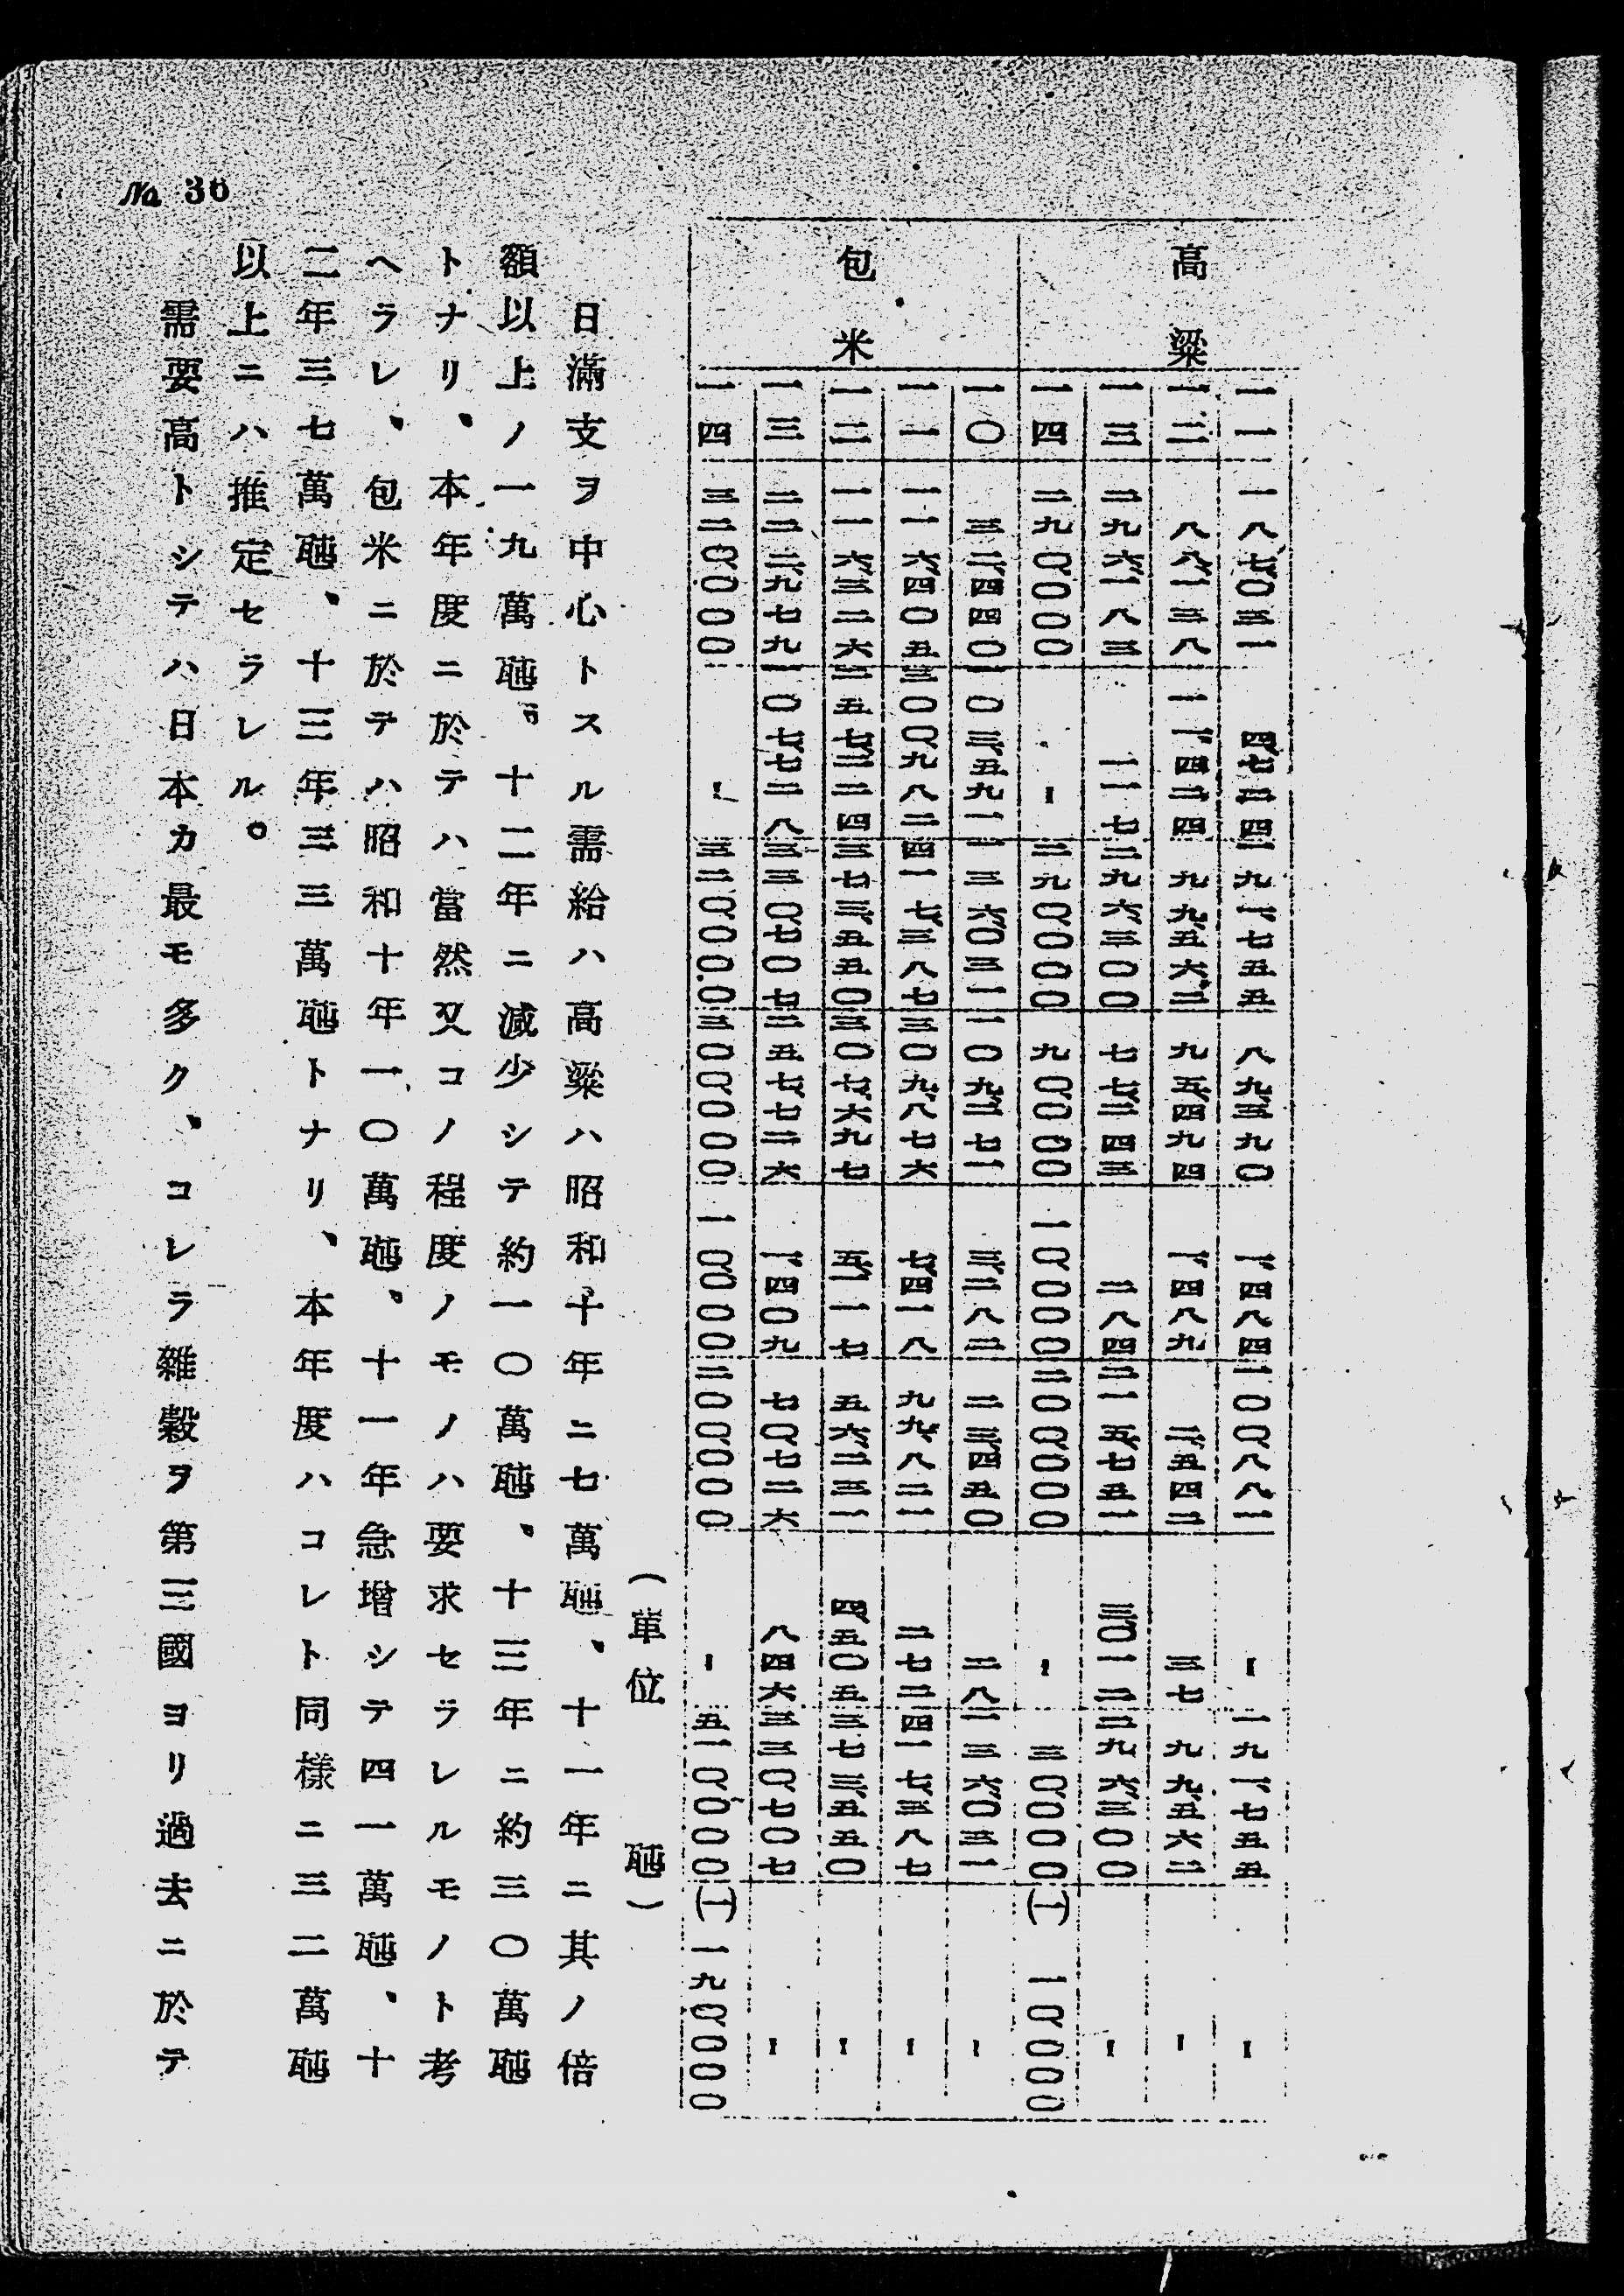 高粱
一一 一八七、〇三一 四、七二四 一九一、七五五 八九、三九〇 一、四八四 一〇〇、八八一 - 一九一、七五五 -
一二 八八、一三八 一一、四二四 九九、五六二 九五、四九四 一、四八九 二、五四二 三七 九九、五六二 -
一三 二九六、一八三 一一七 二九六、三〇〇 七七、二四三 二八四 二一五、七五一 三、〇一二 二九六、三〇〇 -
一四 二九〇、〇〇〇 - 二九〇、〇〇〇 九〇、〇〇〇 一〇、〇〇〇 二〇〇、〇〇〇 - 三〇〇、〇〇〇 (一)一〇、〇〇〇
包米
一〇 三二、四四〇 一〇三、五九一 一三六、〇三一 一〇九、二七一 三、二八二 二三、四五〇 二八 一三六、〇三一 -
一一 一一六、四〇五 三〇〇、九八二 四一七、三八七 三〇九、八七六 七、四一八 九九、八二一 二七二 四一七、三八七 -
一二 一一六、三二六 二五七、二二四 三七三、五五〇 三〇七、六九七 五、一一七 五六、二三一 四、五〇五 三七三、五五〇 -
一三 二二二、九七九 一〇七、七二八 三三〇、七〇七 二五七、七二六 一、四〇九 七〇、七二六 八四六 三三〇、七〇七 -
一四 三二〇、〇〇〇 - 三二〇、〇〇〇 三〇〇、〇〇〇 一〇、〇〇〇 二〇〇、〇〇〇 - 五一〇、〇〇〇 (一)一九〇、〇〇〇
(單位 瓲)
日滿支ヲ中心トスル需給ハ高粱ハ昭和十年ニ七萬瓲、十一年ニ其ノ倍
額以上ノ一九萬瓲、十二年ニ減少シテ約一〇萬瓲、十三年ニ約三〇萬瓲
トナリ、本年度ニ於テハ當然又コノ程度ノモノハ要求セラレルモノト考
ヘラレ、包米ニ於テハ昭和十年一〇萬瓲、十一年急增シテ四一萬瓲、十
二年三七萬瓲、十三年三三萬瓲トナリ、本年度ハコレト同樣ニ三二萬瓲
以上ニハ推定セラレル。
需要高トシテハ日本カ最モ多ク、コレラ雜穀ヲ第三國ヨリ過去ニ於テ
No. 36